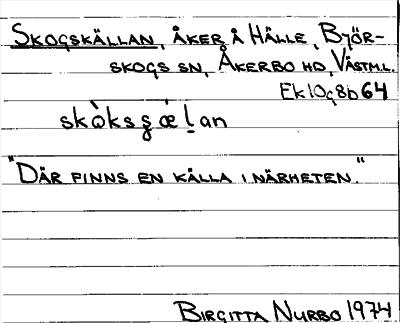 SKOGSKÄLLAN, ÅKER Å HÄLLE, BJÖR-
SKOGS SN, ÅKERBO HD, VÄSTML.
Ek 10g8b 64
skò̀ksʂǽḷan
"DÄR FINNS EN KÄLLA I NÄRHETEN."
BIRGITTA NURBO 1974